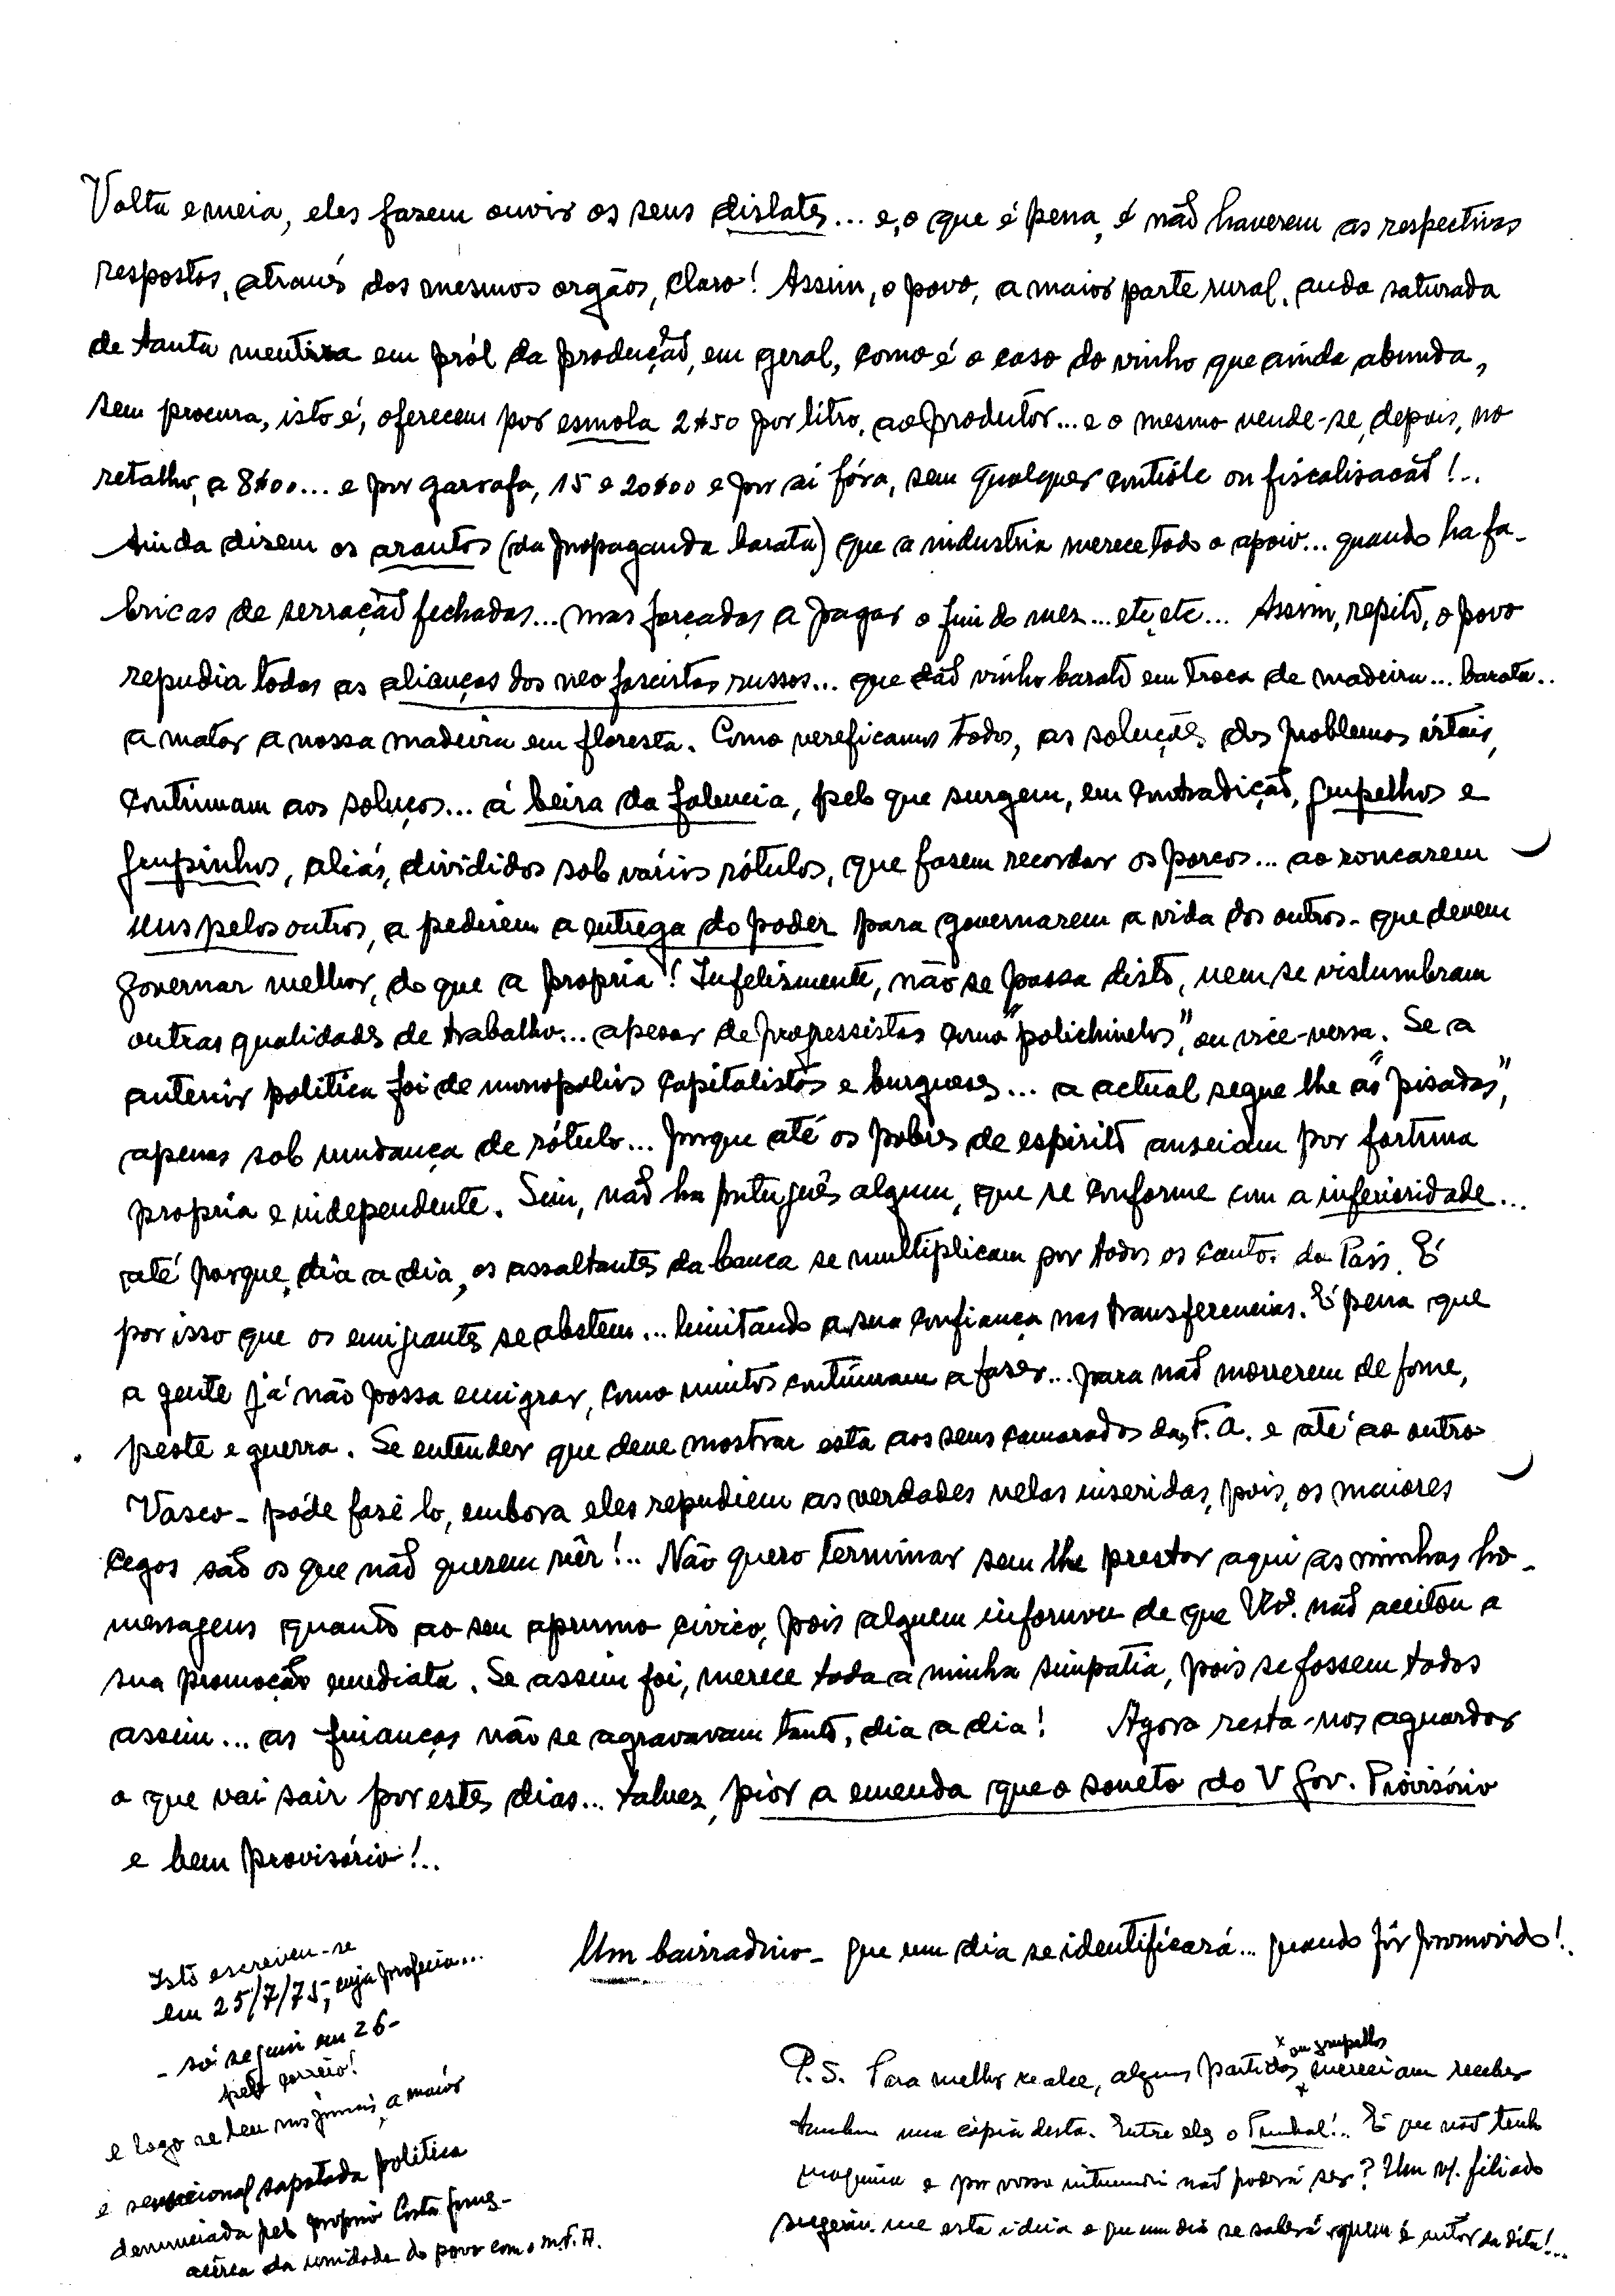 Volta e meia, eles fazem ouvir os seus dislates... e, o que é pena, é não haverem as respectivas
respostas, através dos mesmos orgãos, claro! Assim, o povo, a maior parte rural, anda saturada
de tanta mentira em pról da produção, em geral, como é o caso do vinho que ainda abunda,
sem procura, isto é, oferecem por esmola 2$50 por litro, ao produtor... e o mesmo vende-se, depois, no
retalho, a 8$00... e por garrafa, 15 e 20$00 e por ai fóra, sem qualquer contrôle ou fiscalisação!..
Ainda dizem os arautos (da propaganda barata) que a industria merece todo o apoio... quando ha fa-
bricas de serração fechadas... mas forçadas a pagar o fim do mez... etc, etc... Assim, repito, o povo
repudia todas as alianças dos neo fascistas russos... que dão vinho barato em troca de madeira... barata..
a matar a nossa madeira em floresta. Como vereficamos todos, as soluções dos problemas vitais,
continuam aos soluços... á beira da falencia, pelo que surgem, em contradição, grupelhos e
grupinhos, aliás, divididos sob vários rótulos, que fazem recordar os porcos... ao roncarem
uns pelos outros, a pedirem a entrega do poder para governarem a vida dos outros - que devem
governar melhor, do que a propria! Infelizmente, não se passa disto, nem se vislumbram
outras qualidades de trabalho... apesar de progressistas como "polichinelos", ou vice-versa. Se a
anterior politica foi de monopolios capitalistas e burgueses... a actual segue lhe as "pisadas",
apenas sob mudança de rótulo... porque até os pobres de espirito anseiam por fortuna
propria e independente. Sim, não ha português algum, que se conforme com a inferioridade...
até porque, dia a dia, os assaltantes da banca se multiplicam por todos os cantos do Pais. É
por isso que os emigrantes se abstem... limitando a sua confiança nas transferencias. É pena que
a gente já não possa emigrar, como muitos continuam a fazer... para não morrerem de fome,
peste e guerra. Se entender que deve mostrar esta aos seus camaradas das F.A. e até ao outro
Vasco - póde fazê lo, embora eles repudiem as verdades nelas inseridas, pois, os maiores
cegos são os que não querem vêr!.. Não quero terminar sem lhe prestar aqui as minhas ho-
menagens quanto ao seu aprumo civico, pois alguem informou de que não aceitou a
sua promoção emediata. Se assim foi, merece toda a minha simpatia, pois se fossem todos
assim... as finanças não se agravavam tanto, dia a dia! Agora resta-nos aguardar
o que vai sair por estes dias... talvez, piór a emenda que o soneto do V Gov. Provisório
e bem provisório!..
Um bairradino - que um dia se identificará... quando fôr promovido!..
Isto escreveu-se
em 25/7/75, cuja profecia...
- só seguiu em 26 -
pelo correio!
e logo se leu nos jornais, a maior
e sensacional sapatada politica
denunciada pelo proprio Costa Gomes -
acêrca da unidade do povo com o M.F.A.
P.S. Para melhor realce, alguns partidos x ou grupelhos x mereciam receber
tambem uma cópia desta. Entre eles o !.. É que não tenho
maquina e por vosso intermedio não poderá ser? Um filiado
sugeriu-me esta ideia e que um dia se saberá quem é autor da dita!...